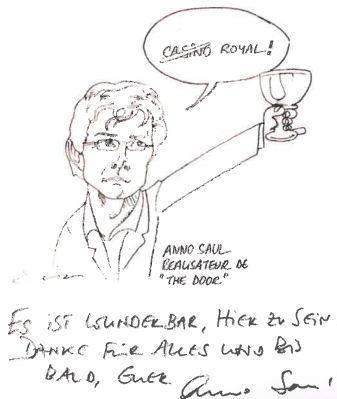 ROYAL!
ANNO SAUL
REALISATEUR DE
"THE DOOR"
ES IST WUNDERBAR, HIER ZU SEIN
DANKE FÜR ALLES UND BIS
BALD, EUER Anno Saul